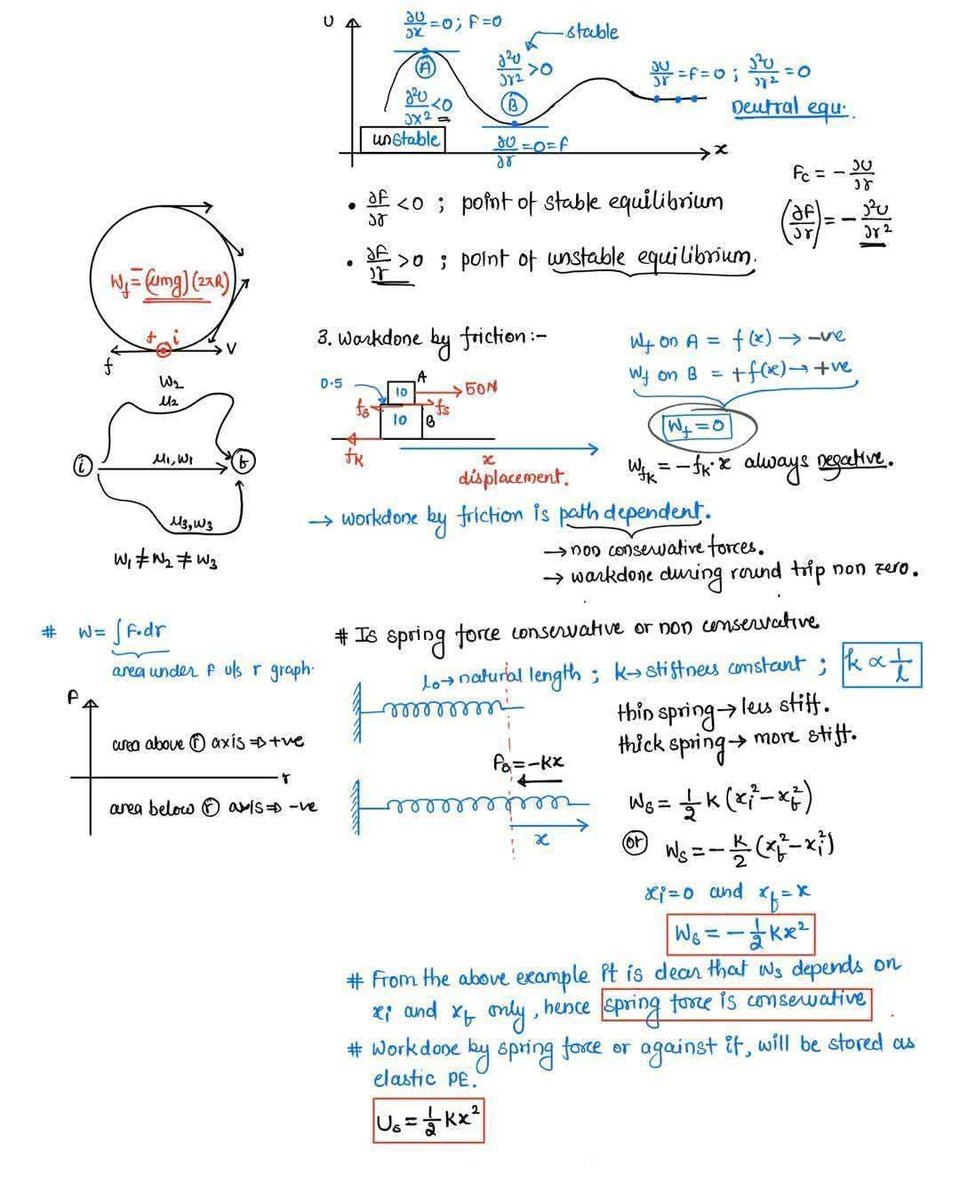 U
∂U/∂x = 0 ; F=0
stable
A
∂²U/∂r² > 0
∂U/∂r = F = 0 ; ∂²U/∂r² = 0
∂²U/∂x² < 0
B
Neutral equ.
unstable
∂U/∂r = 0 = F
x
Fc = - ∂U/∂r
• ∂F/∂r < 0 ; point of stable equilibrium
(∂F/∂r) = - ∂²U/∂r²
• ∂F/∂r > 0 ; point of unstable equilibrium.
Wf = (μmg)(2πR)
f i
f V
3. Workdone by friction:-
Wf on A = f(x) → -ve
Wf on B = +f(x) → +ve
Wf = 0
0.5 A
10 50N
fs fs
10 B
fK
x
displacement.
WfK = -fK·x always negative.
W2
μ2
i μ1,W1 f
μ3,W3
W1 ≠ W2 ≠ W3
→ workdone by friction is path dependent.
→ non conservative forces.
→ workdone during round trip non zero.
# W = ∫F·dr
area under F v/s r graph.
F
area above r axis ⇒ +ve
r
area below r axis ⇒ -ve
# Is spring force conservative or non conservative
lo → natural length ; k → stiffness constant ; k ∝ 1/l
thin spring → less stiff.
thick spring → more stiff.
Fs = -Kx
x
Ws = 1/2 K (xi² - xf²)
or Ws = - K/2 (xf² - xi²)
xi = 0 and xf = x
Ws = - 1/2 Kx²
# From the above example it is clear that Ws depends on
xi and xf only, hence spring force is conservative
# Workdone by spring force or against it, will be stored as
elastic PE.
Us = 1/2 Kx²